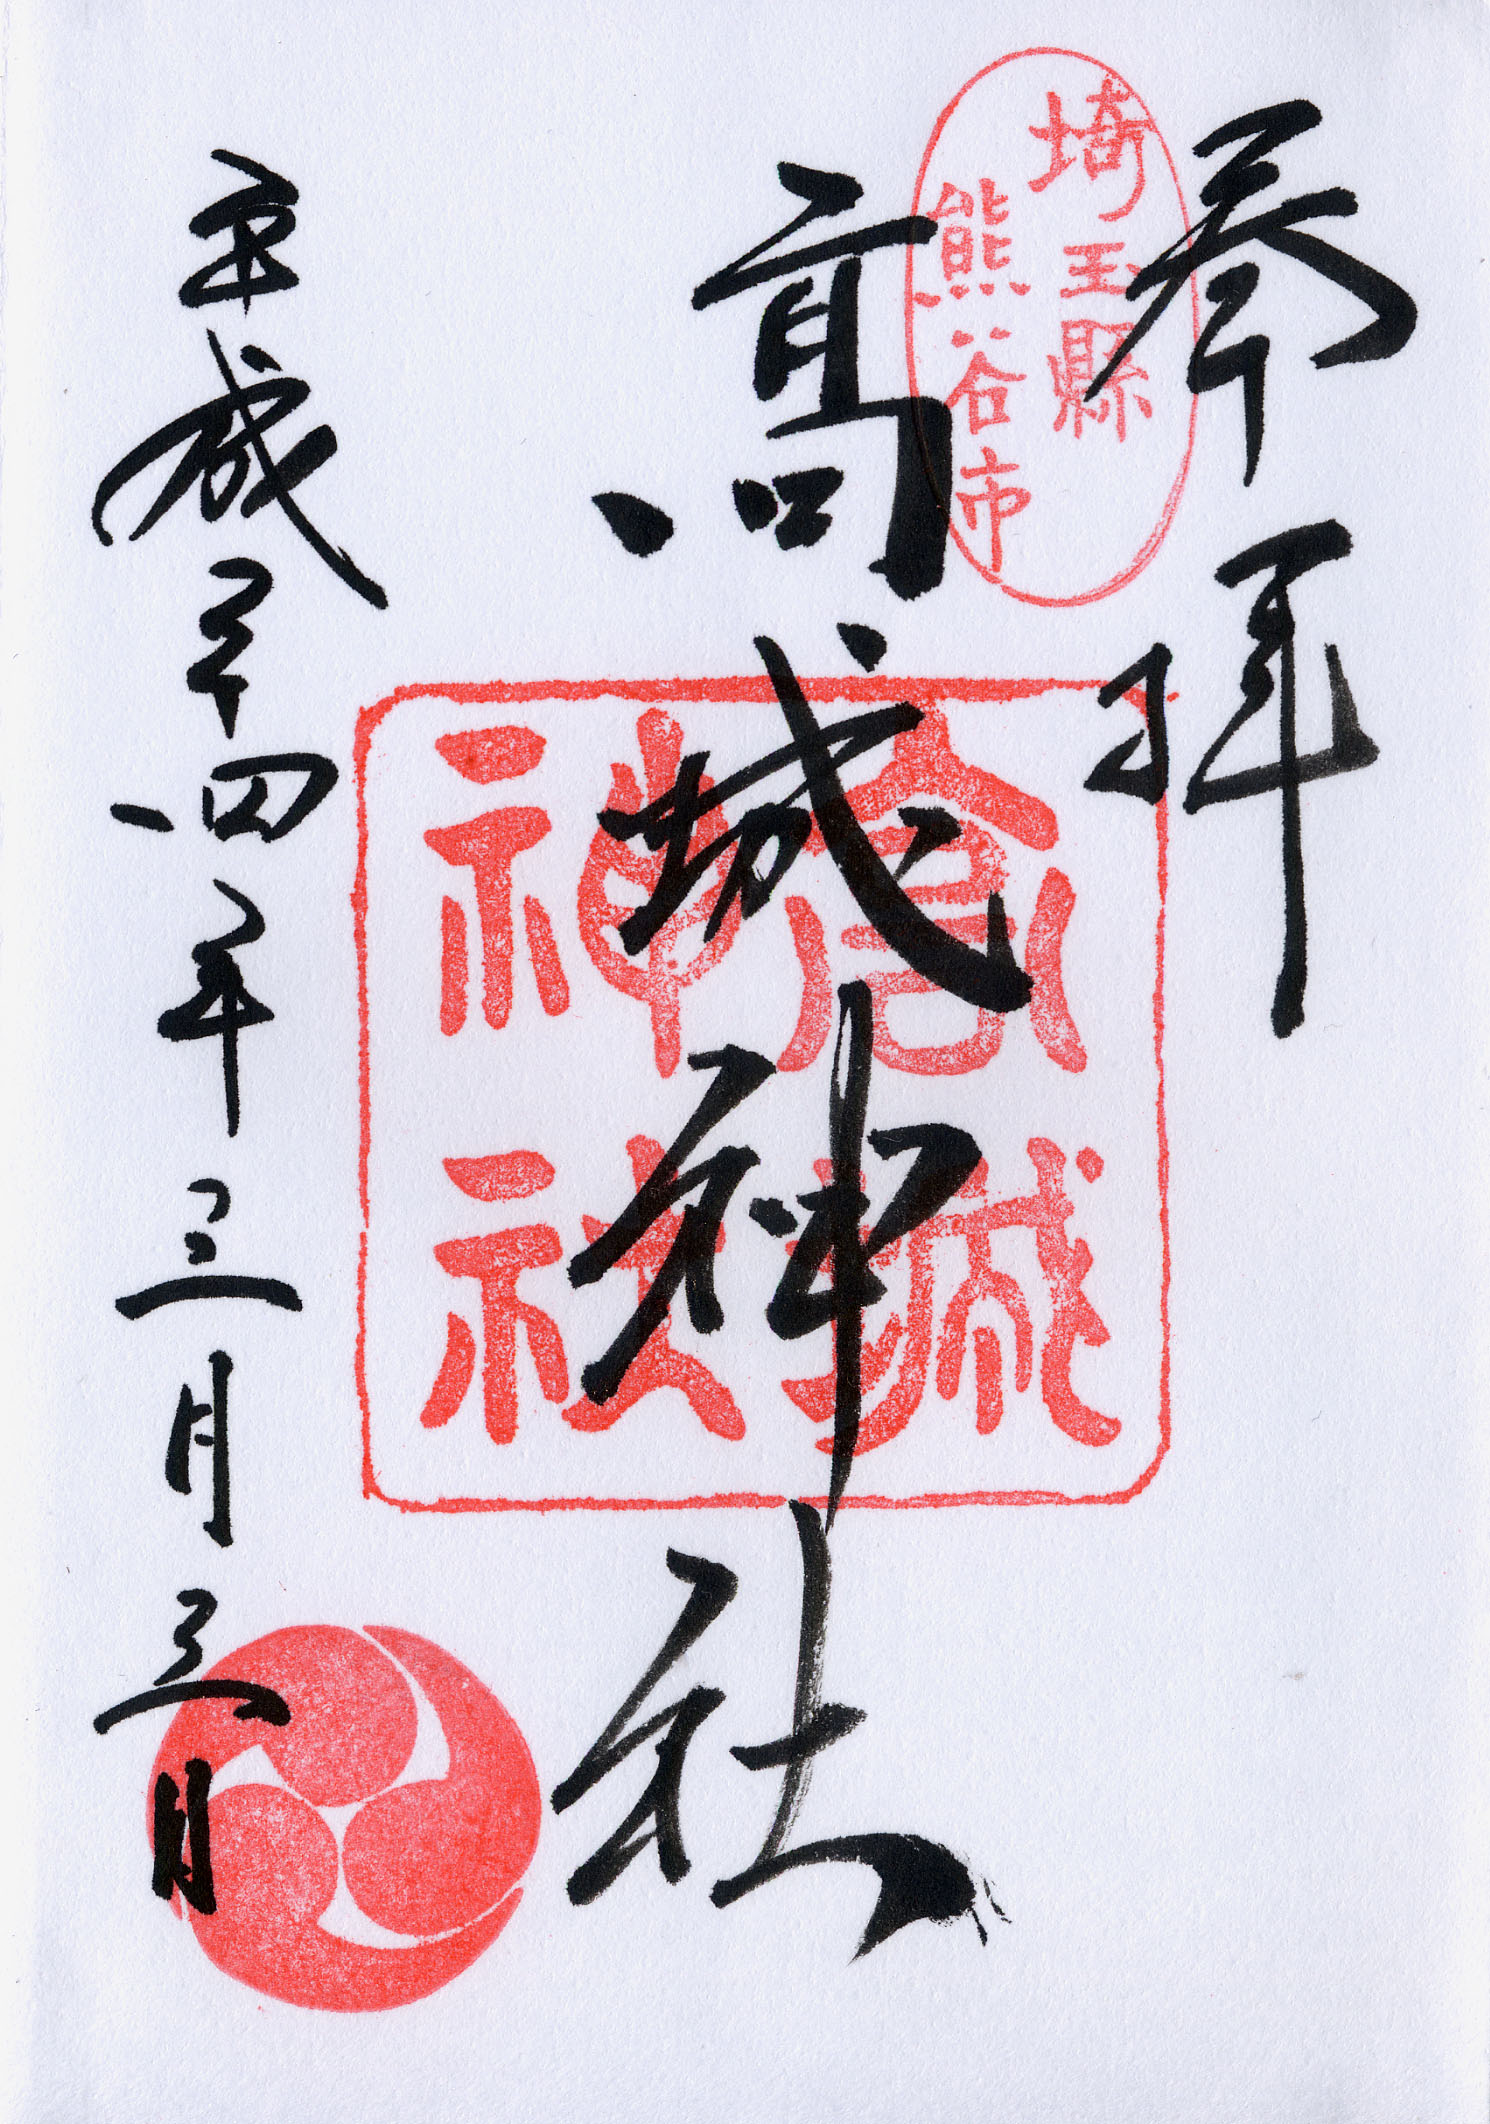 奉拝
埼玉縣
熊谷市
髙城神社
高城
神社
平成二十四年三月三日